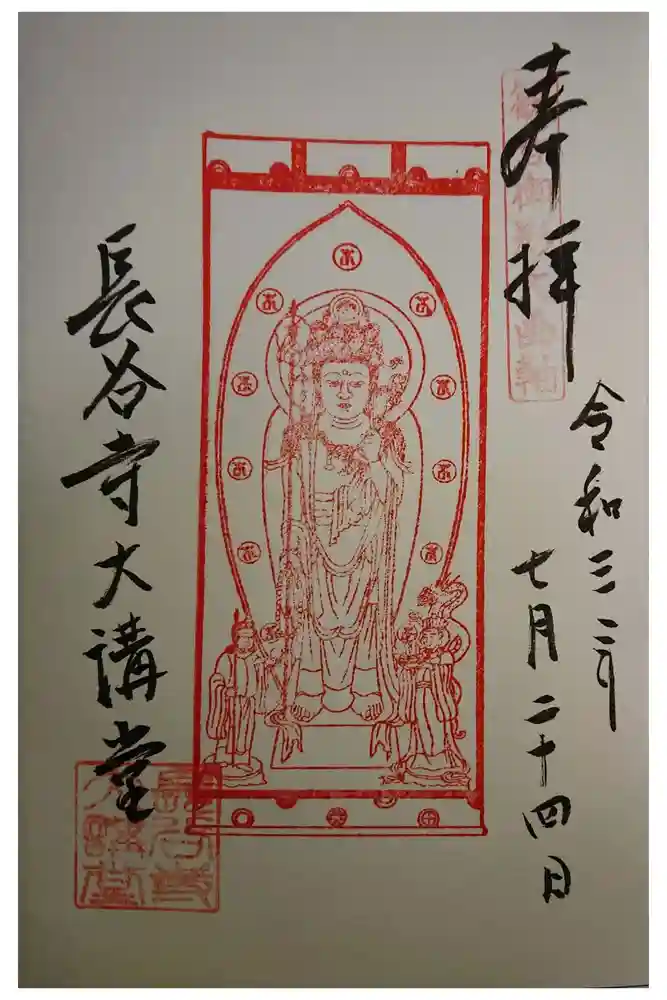 奉拝
令和三年
七月二十四日
長谷寺大講堂
長谷寺
大講堂